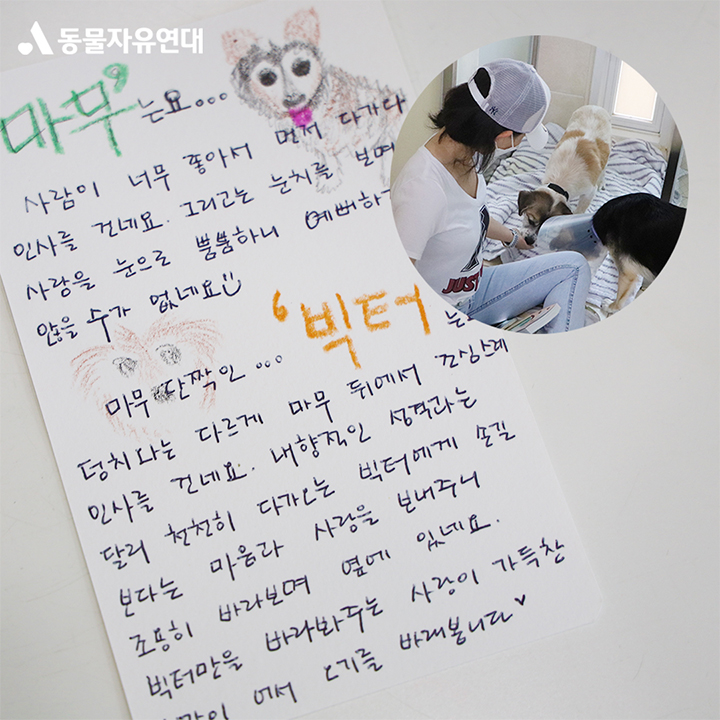 동물자유연대
'마무'는요...
사람이 너무 좋아서 먼저 다가와
인사를 건네요. 그리고는 눈치를 보며
사랑을 눈으로 뿜뿜하니 예뻐하지
않을 수가 없네요
마무 단짝인... '빅터
는
덩치와는 다르게 마무 뒤에서 조심스레
인사를 건네요. 내향적인 성격과는
달리 천천히 다가오는 빅터에게 손길
보다는 마음과 사랑을 보내주니
조용히 바라보며 옆에 있네요.
빅터만을 바라봐주는 사랑이 가득찬
이 어서 오기를 바래봅니다
JUST